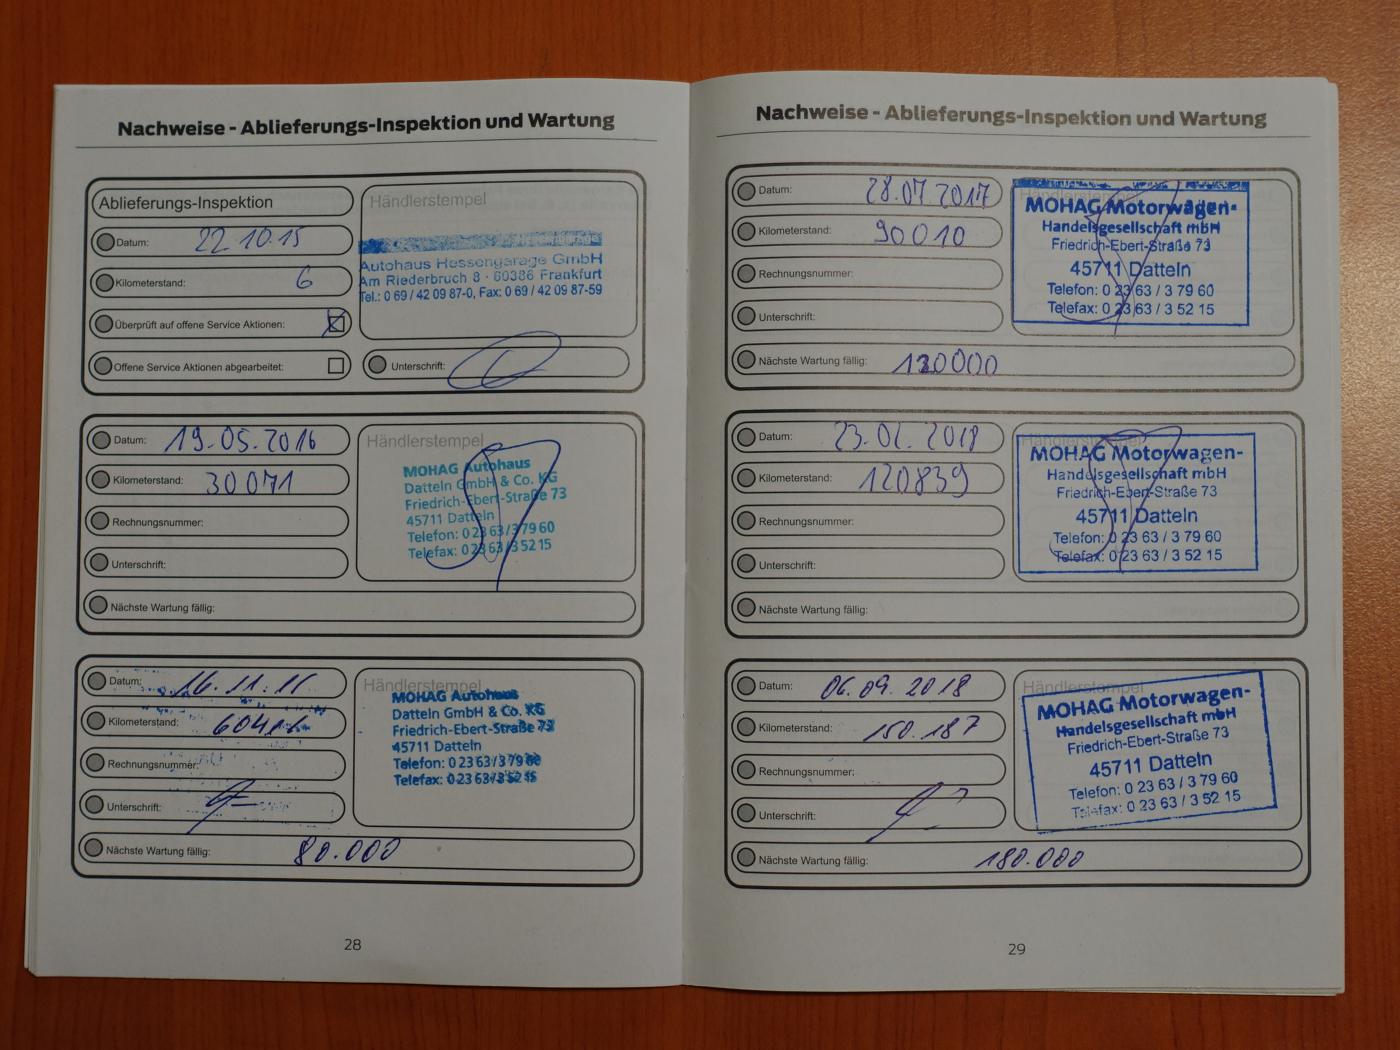 Nachweise - Ablieferungs-Inspektion und Wartung
Ablieferungs-Inspektion
Datum: 22.10.15
Kilometerstand: 6
Überprüft auf offene Service Aktionen:
Offene Service Aktionen abgearbeitet:
Händlerstempel
Autohaus Hessengarage GmbH
Am Riederbruch 8 · 60386 Frankfurt
Tel.: 0 69 / 42 09 87-0, Fax: 0 69 / 42 09 87-59
Unterschrift:
Datum: 19.05.2016
Kilometerstand: 30071
Rechnungsnummer:
Unterschrift:
Händlerstempel
MOHAG Autohaus
Datteln GmbH & Co. KG
Friedrich-Ebert-Straße 73
45711 Datteln
Telefon: 0 23 63 / 3 79 60
Telefax: 0 23 63 / 3 52 15
Nächste Wartung fällig:
Datum: 16.11.16
Kilometerstand: 60416
Rechnungsnummer:
Unterschrift:
Händlerstempel
MOHAG Autohaus
Datteln GmbH & Co. KG
Friedrich-Ebert-Straße 73
45711 Datteln
Telefon: 0 23 63 / 3 79 60
Telefax: 0 23 63 / 3 52 15
Nächste Wartung fällig: 80.000
28
Nachweise - Ablieferungs-Inspektion und Wartung
Datum: 28.07.2017
Kilometerstand: 90010
Rechnungsnummer:
Unterschrift:
Händlerstempel
MOHAG Motorwagen-
Handelsgesellschaft mbH
Friedrich-Ebert-Straße 73
45711 Datteln
Telefon: 0 23 63 / 3 79 60
Telefax: 0 23 63 / 3 52 15
Nächste Wartung fällig: 120000
Datum: 23.02.2018
Kilometerstand: 120839
Rechnungsnummer:
Unterschrift:
Händlerstempel
MOHAG Motorwagen-
Handelsgesellschaft mbH
Friedrich-Ebert-Straße 73
45711 Datteln
Telefon: 0 23 63 / 3 79 60
Telefax: 0 23 63 / 3 52 15
Nächste Wartung fällig:
Datum: 06.09.2018
Kilometerstand: 150.187
Rechnungsnummer:
Unterschrift:
Händlerstempel
MOHAG Motorwagen-
Handelsgesellschaft mbH
Friedrich-Ebert-Straße 73
45711 Datteln
Telefon: 0 23 63 / 3 79 60
Telefax: 0 23 63 / 3 52 15
Nächste Wartung fällig: 180.000
29